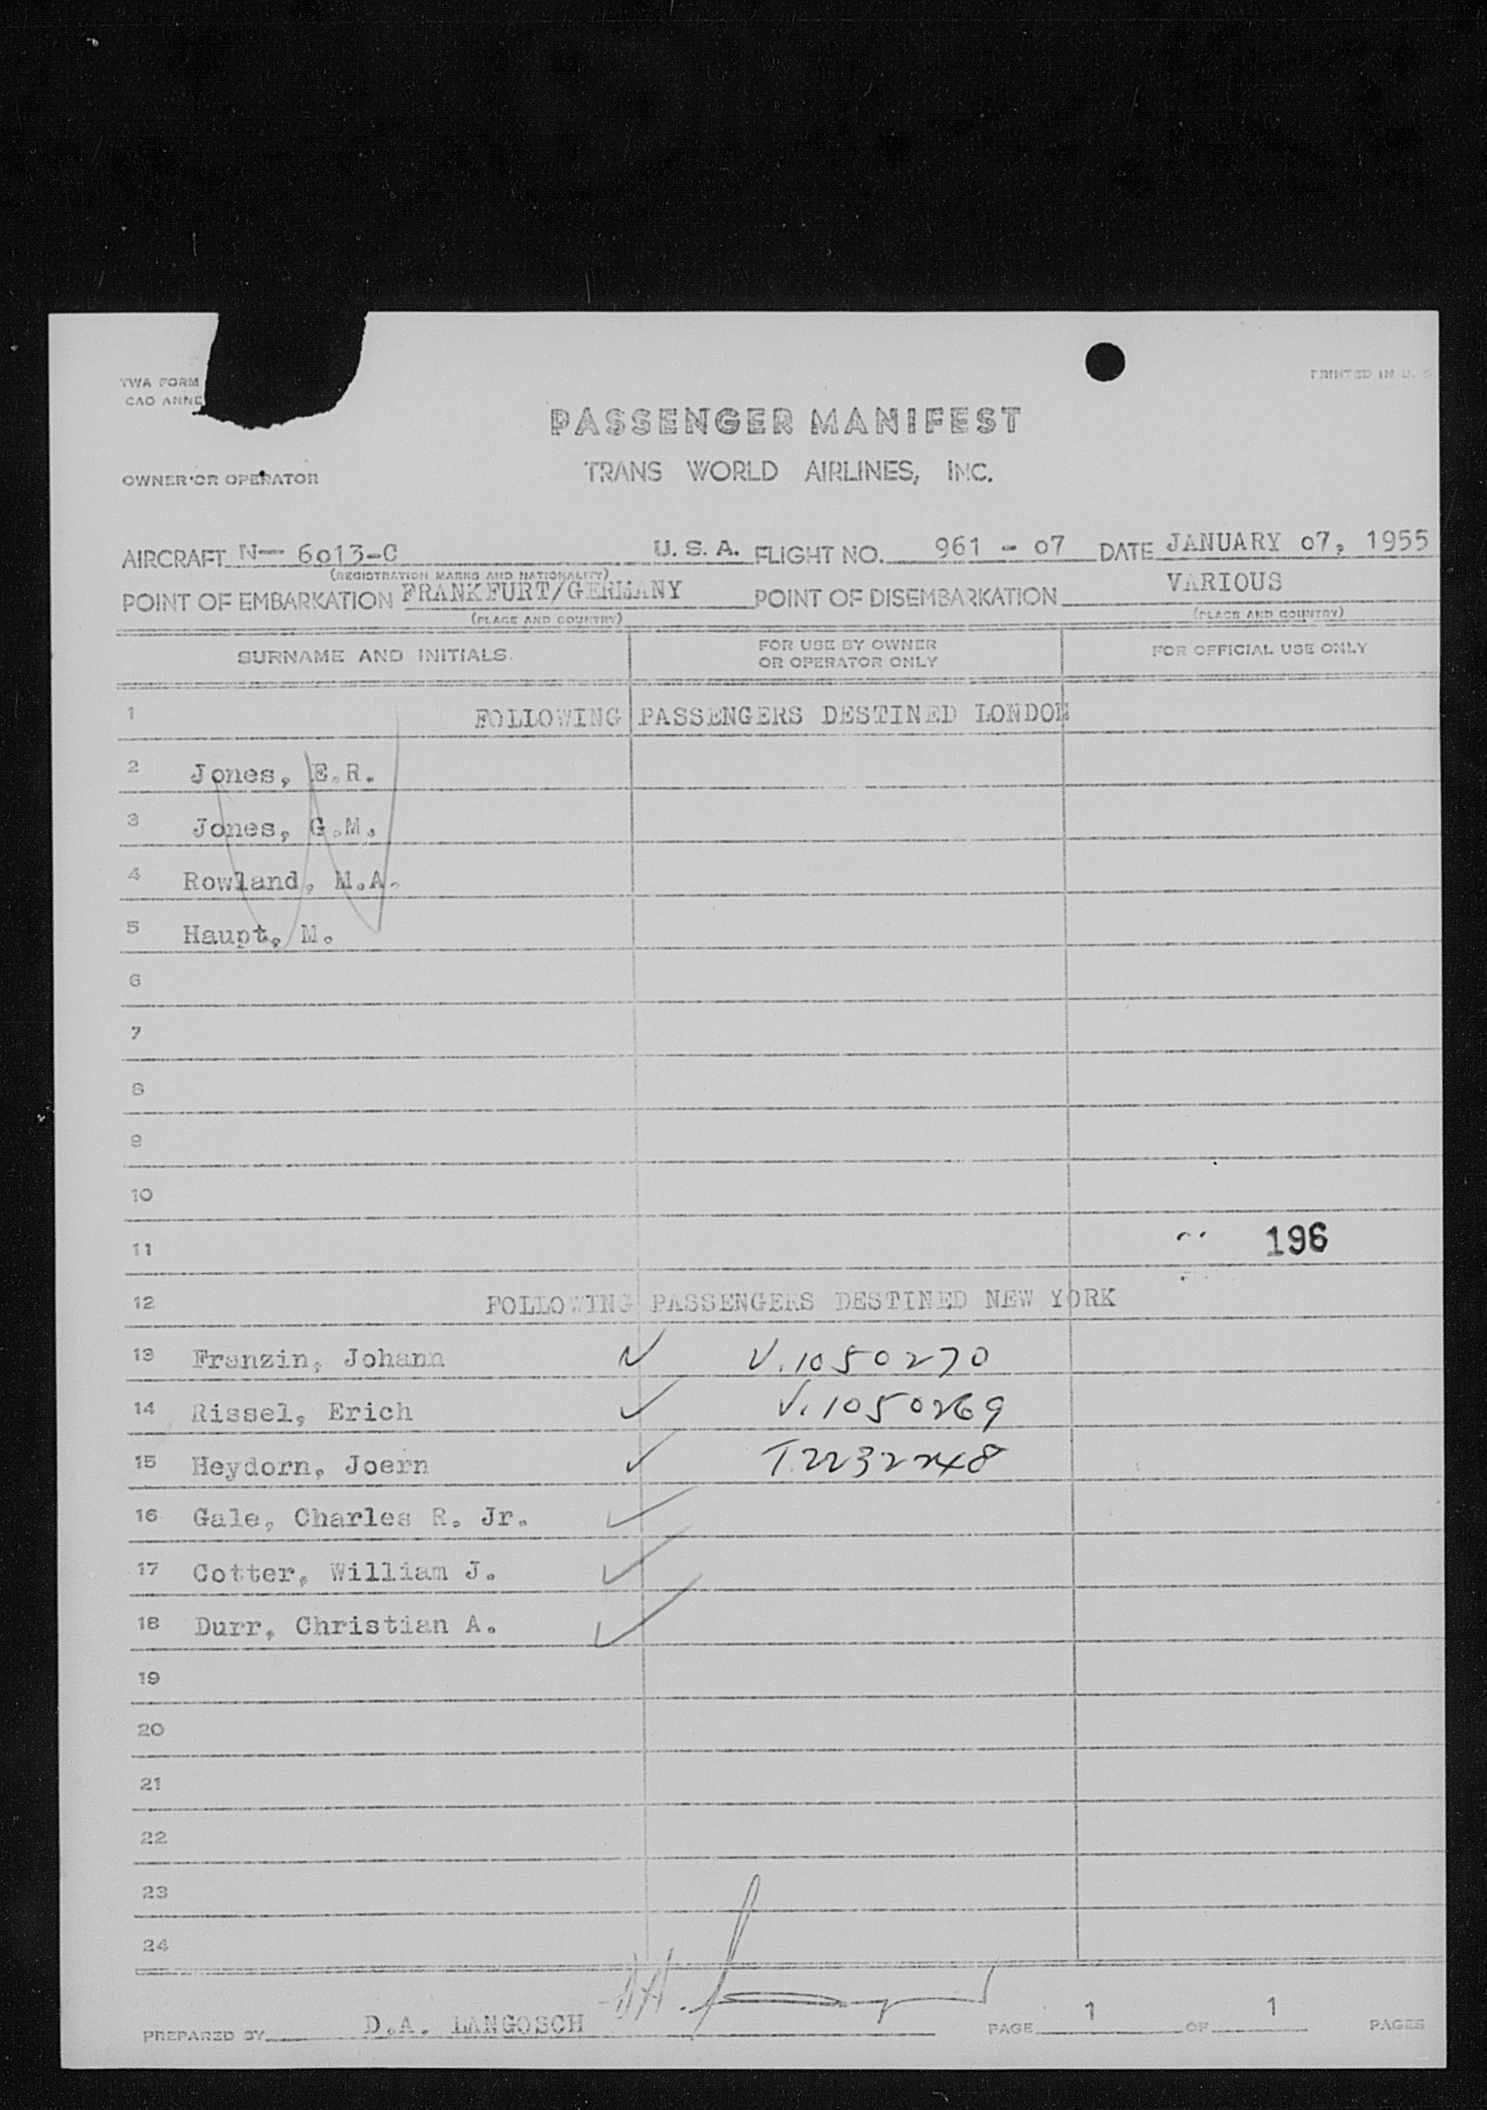 TWA FORM
CAO ANNE
PRINTED IN U. S
PASSENGER MANIFEST
OWNER OR OPERATOR
TRANS WORLD AIRLINES, INC.
AIRCRAFT N- 6013-C U.S.A. FLIGHT NO. 961 - 07 DATE JANUARY 07, 1955
(REGISTRATION MARKS AND NATIONALITY)
POINT OF EMBARKATION FRANKFURT/GERMANY POINT OF DISEMBARKATION VARIOUS
(PLACE AND COUNTRY) (PLACE AND COUNTRY)
SURNAME AND INITIALS. FOR USE BY OWNER OR OPERATOR ONLY FOR OFFICIAL USE ONLY
1 FOLLOWING PASSENGERS DESTINED LONDON
2 Jones, E.R.
3 Jones, G.M.
4 Rowland, M.A.
5 Haupt, M.
6
7
8
9
10
11 196
12 FOLLOWING PASSENGERS DESTINED NEW YORK
13 Franzin, Johann V.1050270
14 Rissel, Erich V.1050269
15 Heydorn, Joern T.2232248
16 Gale, Charles R. Jr.
17 Cotter, William J.
18 Durr, Christian A.
19
20
21
22
23
24
PREPARED BY D.A. LANGOSCH PAGE 1 OF 1 PAGES